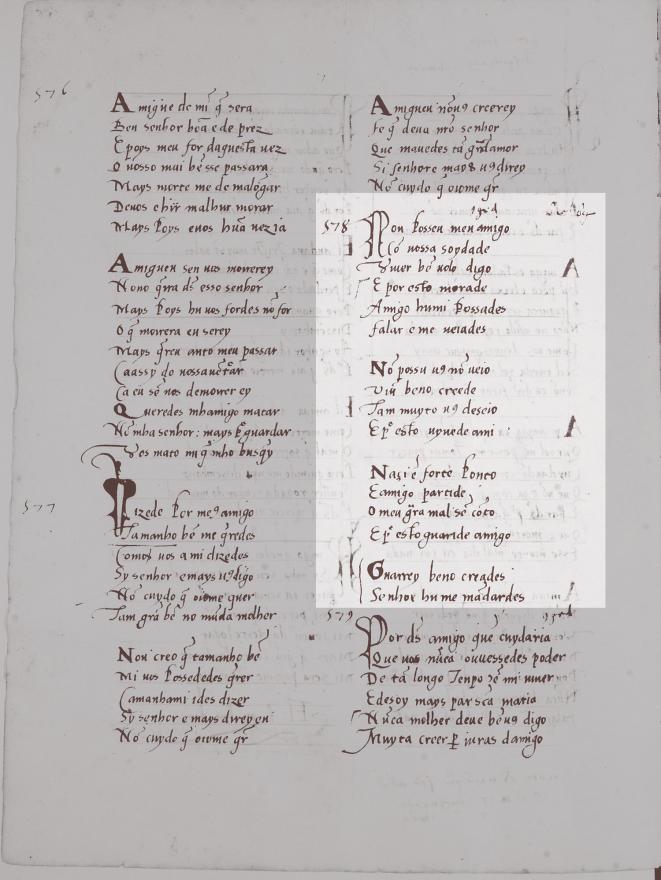 576
Amigue de mi q̄ sera
Ben senhor boã ede prez
E poys meu for daquesta uez
O uosso mui bēsse passara
Mays morte me de malōgar
Deuos e hir̄ malhur morar
Mays poys euos hūa uez ia
Amiguen sen uos morrerey
Nono q̄rra ds̄ esso senhor
Mays poys hu uos fordes nō for
O q̄ morrera eu serey
Mays q̄reu anto meu passar
Ca assy do uossauētar
Ca eu sē uos demorrer ey
Queredes mhamigo matar
Nō mha senhor: mays pº guardar
Vos mato mi q̄ mho busq̄y
577
Dizede por meꝰ amigo
Tamanho bē me q̄redes
Comoh uos a mi dizedes
Sy senhor emays uꝰ digo
Nō cuydo q̄ oiome quer
Tam grā bē no mūda molher
Non creo q̄ tamanho bē
Mi uos possededes q̄rer
Camanhami ides dizer
Sy senhor e mays direy en
Nō cuydo q̄ oiome q̄r
Amigueu nōuꝰ creerey
fe q̄ deua nrō senhor
Que mauedes tā grādamor
Si senhore mays uꝰ direy
Nō cuydo q̄ oiome q̄r
578
Non posseu meu amigo
Cō uossa soydade
Viuer bē uolo digo
E por esto morade
Amigo humi possades
falar e me ueiades
Nō possu uꝰ nō ueio
Viū beno creede
Tam muyto uꝰ deseio
E pº esto uyuede ami
Naçi e forte ponto
E amigo partide
O meu grā mal sē cōto
E pº esto guaride amigo
Guarrey beno creades
Senhor hu me mādardes
579
Por ds̄ amigo que cuydaria
Que uos nūca ouuessedes poder
De tā longo tenpo sē mi uiuer
E desoy mays par sc̄a maria
Nūca molher deue bēuꝰ digo
Muyta creer ꝑ iuras damigo